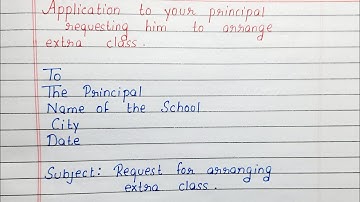 Application to your principal
requesting him to arrange
extra class.
To
The Principal
Name of the School
City
Date
Subject: Request for arranging
extra class.